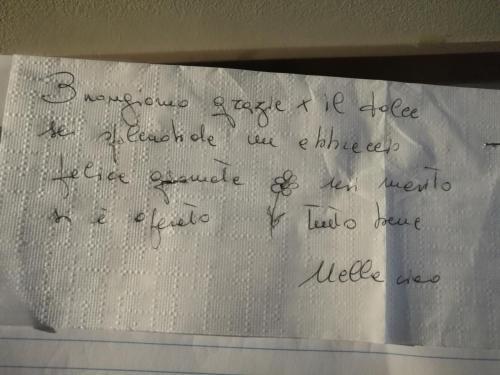 Bnongiorno grazie x il dolce
sei splendide un abbraccio
felice giornata un merito
si è operato Tutto bene
Mella ciao